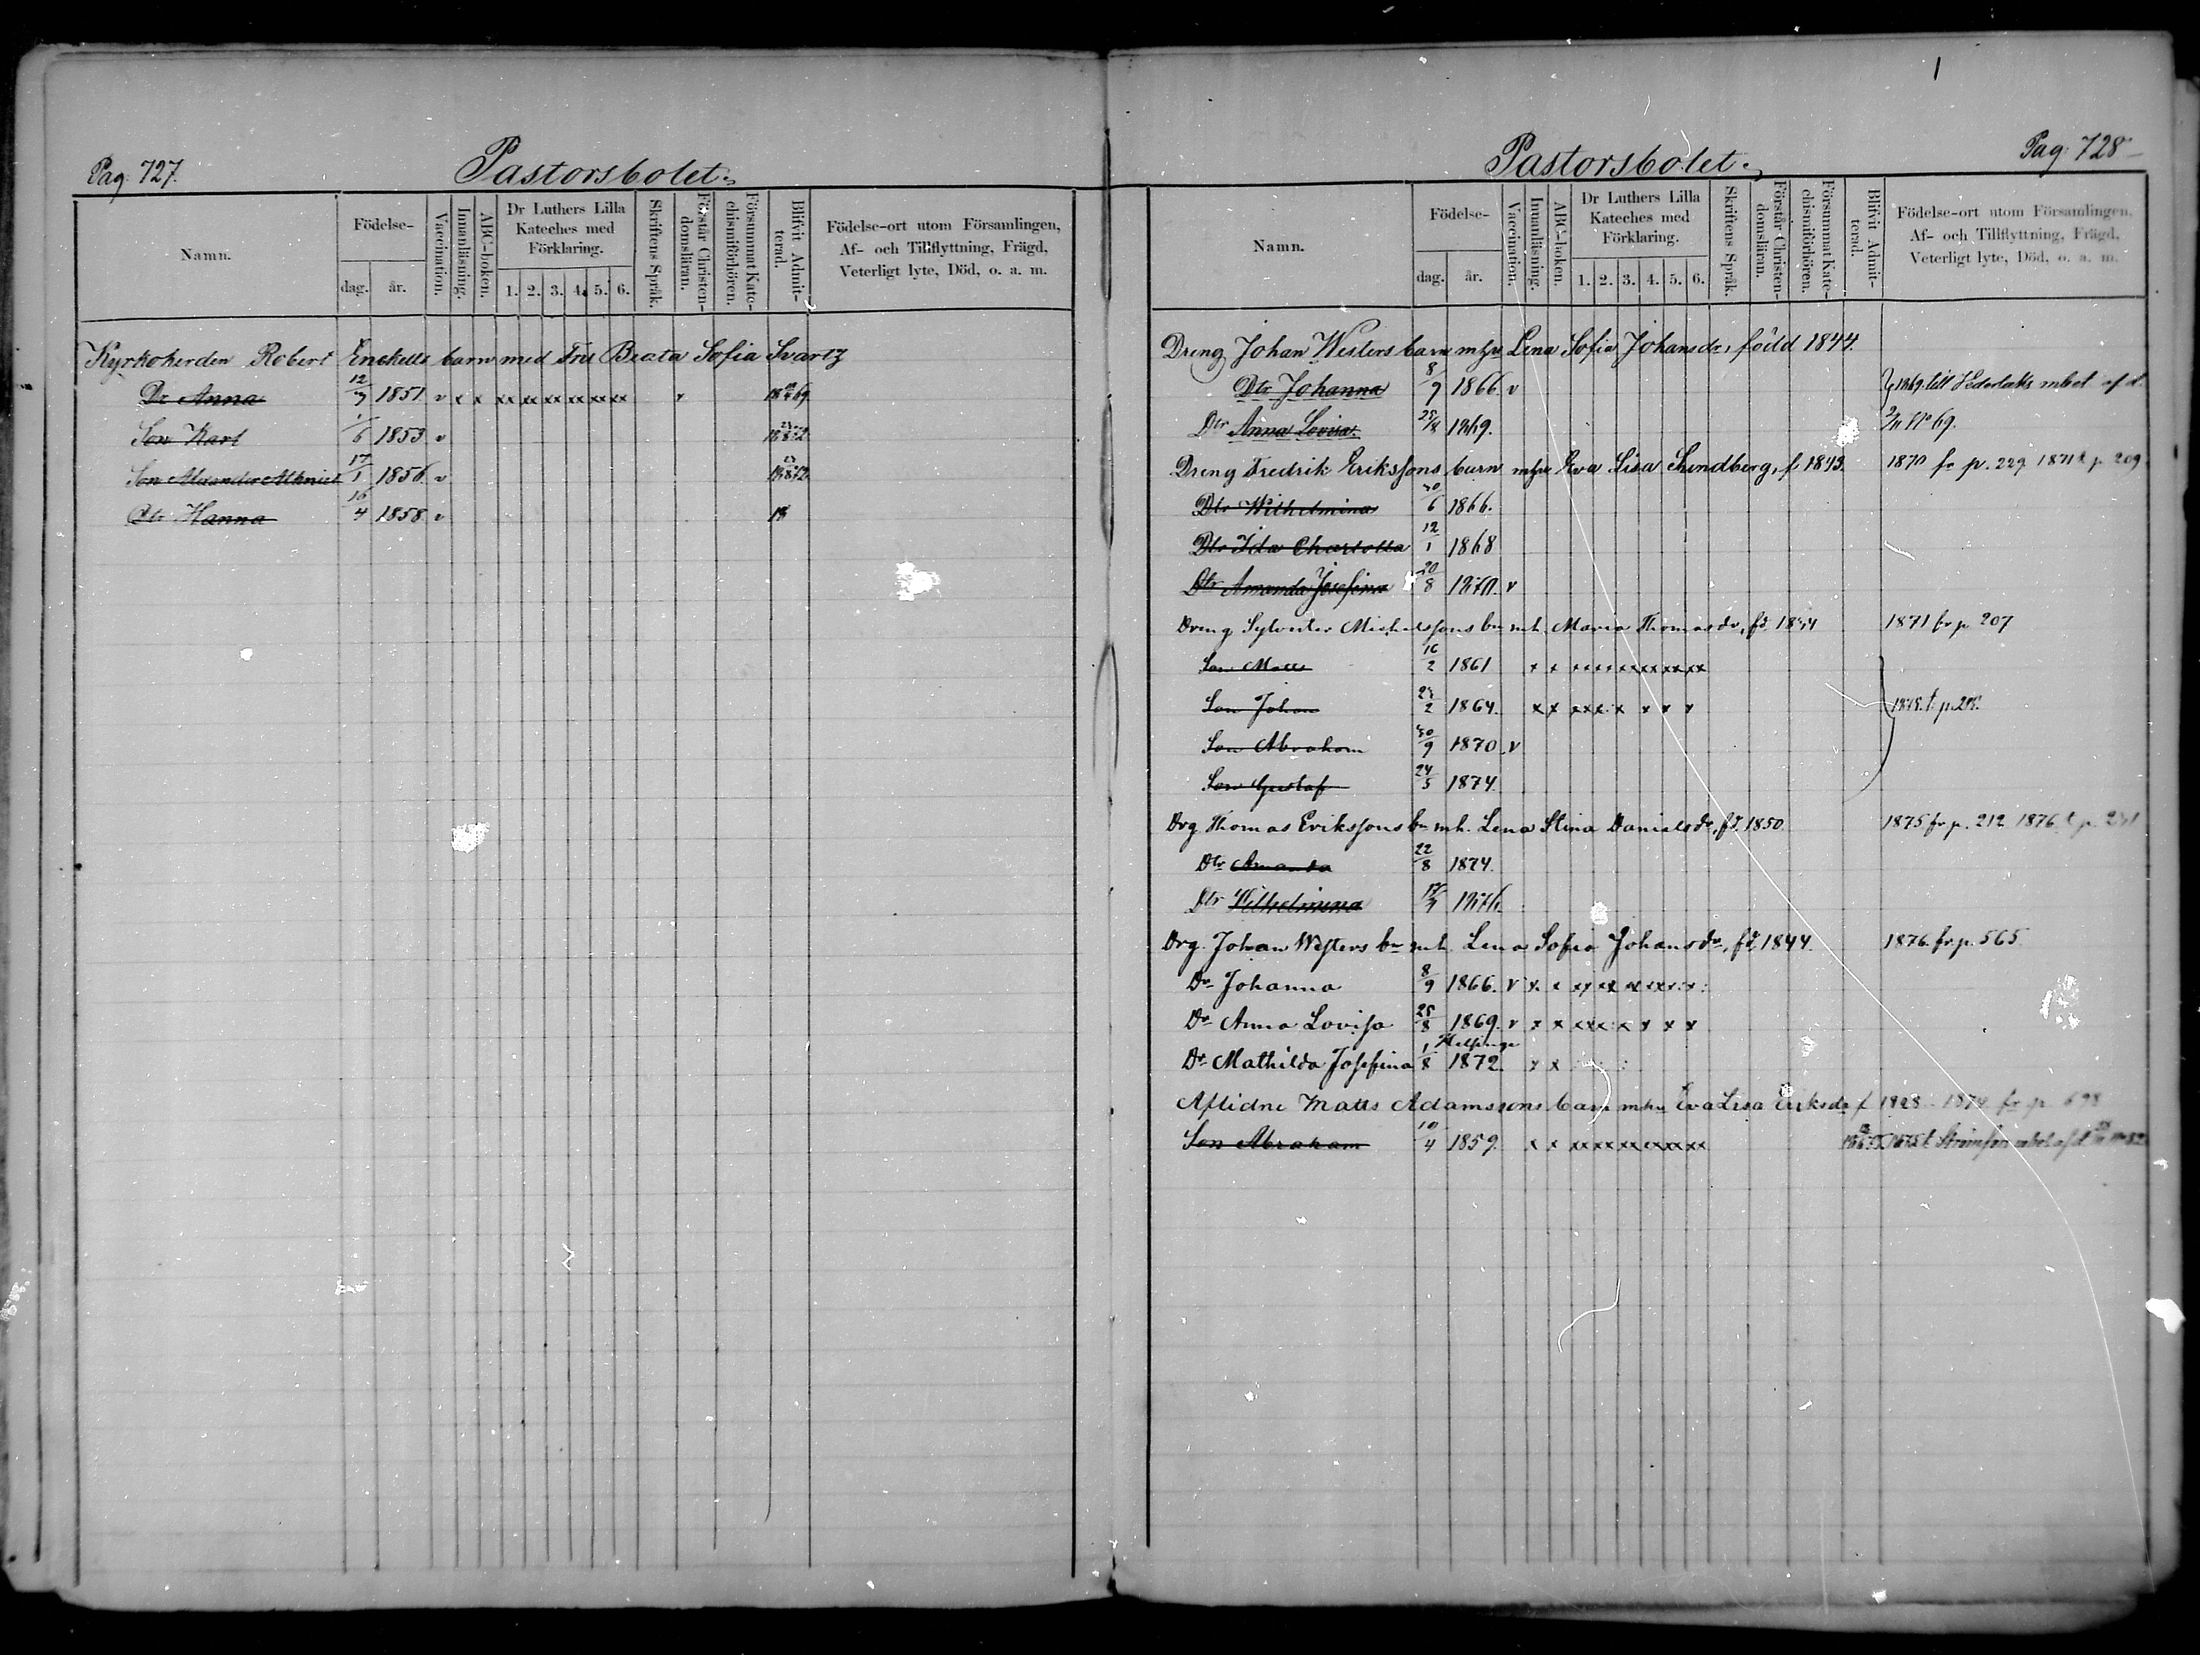 Pag. 727.
Pastorsbolet.
Namn.
Födelse-
dag.
år.
Vaccination.
Innanläsning.
ABC-boken.
Dr Luthers Lilla
Kateches med
Förklaring.
1. 2. 3. 4. 5. 6.
Skriftens Språk.
Förstår Christen-
domsläran.
Försummat Kate-
chismiförhören.
Blifvit Admit-
terad.
Födelse-ort utom Församlingen,
Af- och Tillflyttning, Frägd,
Veterligt lyte, Död, o. a. m.
Kyrkoherden Robert Enckells barn med Fru Beata Sofia Svartz
Dr Anna 12/3 1851. v x x xx xx xx xx xx xx
Son Karl 1853 v
Son 17/1 1856. v
Dtr Hanna 16/4 1858 v 18
Pag. 728
Pastorsbolet.
Namn.
Födelse-
dag.
år.
Vaccination.
Innanläsning.
ABC-boken.
Dr Luthers Lilla
Kateches med
Förklaring.
1. 2. 3. 4. 5. 6.
Skriftens Språk.
Förstår Christen-
domsläran.
Försummat Kate-
chismiförhören.
Blifvit Admit-
terad.
Födelse-ort utom Församlingen,
Af- och Tillflyttning, Frägd,
Veterligt lyte, Död, o. a. m.
Dreng Johan Westers barn mhu Lena Sofia Johansdr, född 1844.
Dtr Johanna 8/9 1866 v 1869 till
Dtr Anna Lovisa. 25/8 1869. 69.
Dreng Fredrik Erikssons barn mhu Eva Lisa Sundberg, f 1843. 1870 fr p. 229 1871 t p. 209
Dtr Wilhelmina 30/6 1866.
Dtr Ida Charlotta 12/1 1868
Dtr Amanda Josefina 20/8 1870. v
Dreng Sylvester Michelssons bn mh. Maria Thomasdr, fd 1871 fr p 207
Son Matts 16/2 1861 x x
Son Johan 2 1864. x x
Son Abraham 30/9 1870. v
Son Gustaf 24/5 1874.
Drg Thomas Erikssons bn mh. Lena Stina Danielsdr, fd 1850. 1875 fr p. 212 1876 t p.
Dtr Amanda 22/8 1874.
Dtr Wilhelmina 1876.
Drg. Johan Westers bn mh. Lena Sofia Johansdr, fd 1844. 1876. fr p. 565
Dr Johanna 8/9 1866. v x x
Dr Anna Lovisa 25/8 1869. v x x
Helsinge
Dr Mathilda Josefina 1/8 1872. x x
Aflidne Matts Adamssons barn mhu Eva Lisa Eriksdr f 1828 1874 fr p 698
Son Abraham 10/4 1859. x x